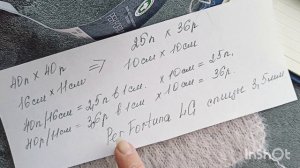 40п x 40р ⇒ 25п x 36р
16см x 11см 10см x 10см
40п/16см = 25п в 1см. x 10см = 25п.
40р/11см = 36р в 1см x 10см = 36р.
Per Fortuna LG спицы 3,5мм
InShot